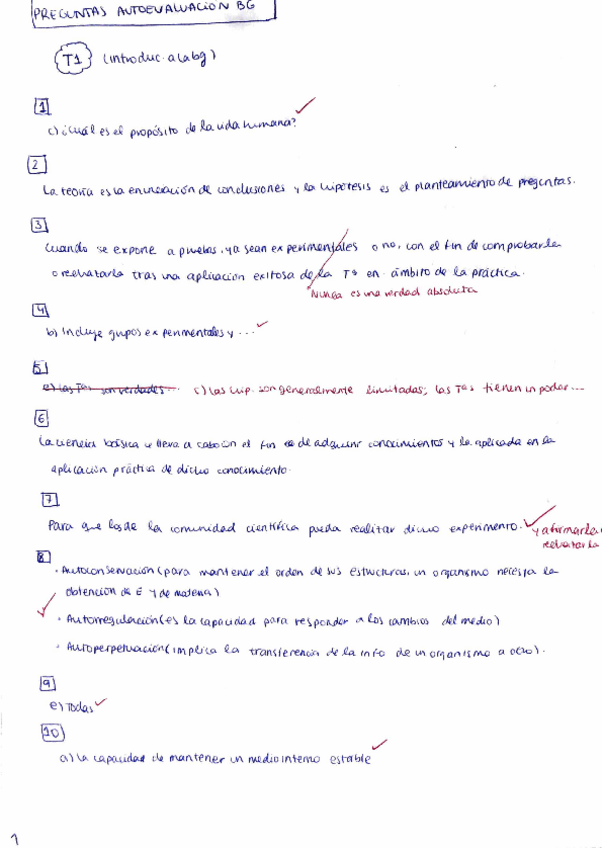 PREGUNTAS AUTOEVALUACIÓN BG
T1 (introduc. a la bg)
1
c) ¿Cuál es el propósito de la vida humana?
2
La teoría es la enunciación de conclusiones y la hipótesis es el planteamiento de preguntas.
3
Cuando se expone a pruebas, ya sean experimentales o no, con el fin de comprobarla
o reebatarla tras una aplicación exitosa de la Tª en ámbito de la práctica.
Nunca es una verdad absoluta
4
b) Incluye grupos experimentales y ...
5
e) Las Tªs son verdades... c) Las hip. son generalmente limitadas; las Tªs tienen un poder...
6
La ciencia básica se lleva a cabo con el fin de adquirir conocimientos y la aplicada en la
aplicación práctica de dicho conocimiento.
7
Para que los de la comunidad científica pueda realizar dicho experimento. y afirmarla
reebatarla
8
· Autoconservación (para mantener el orden de sus estructuras, un organismo necesita la
obtención de E y de materia)
· Autorregulación (es la capacidad para responder a los cambios del medio)
· Autoperpetuación (implica la transferencia de la info de un organismo a otro).
9
e) Todas
10
a) la capacidad de mantener un medio interno estable
1